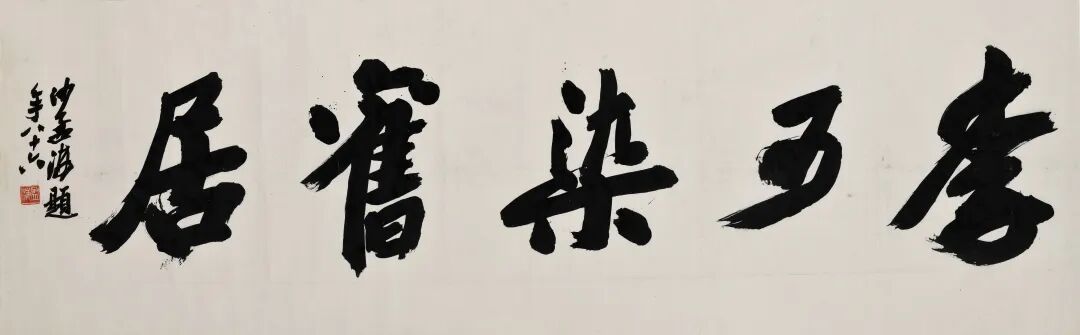 李可染舊居
沙孟海題
年八十六